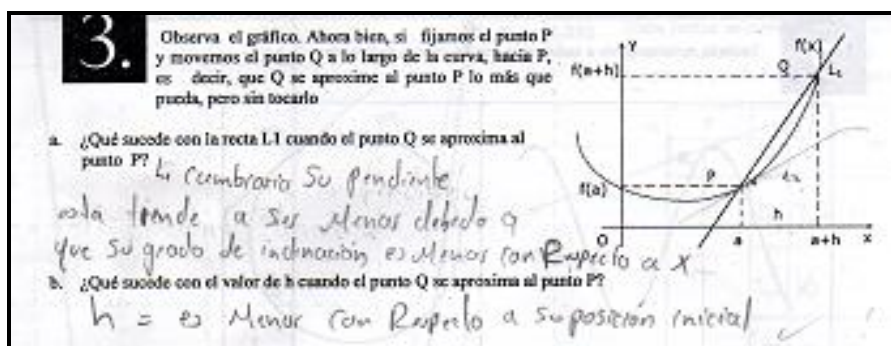 3.
Observa el gráfico. Ahora bien, si fijamos el punto P
y movemos el punto Q a lo largo de la curva, hacia P,
es decir, que Q se aproxime al punto P lo más que
pueda, pero sin tocarlo
a. ¿Qué sucede con la recta L1 cuando el punto Q se aproxima al
punto P?
L1 cambiaria Su pendiente
esta tiende a Ser Menor debido a
que Su grado de inclinación es Menor con Respecto a X
b. ¿Qué sucede con el valor de h cuando el punto Q se aproxima al punto P?
h = es Menor con Respecto a su posición inicial
Y
f(x)
f(a+h)
Q
L1
P
L2
f(a)
h
O
a
a+h
x